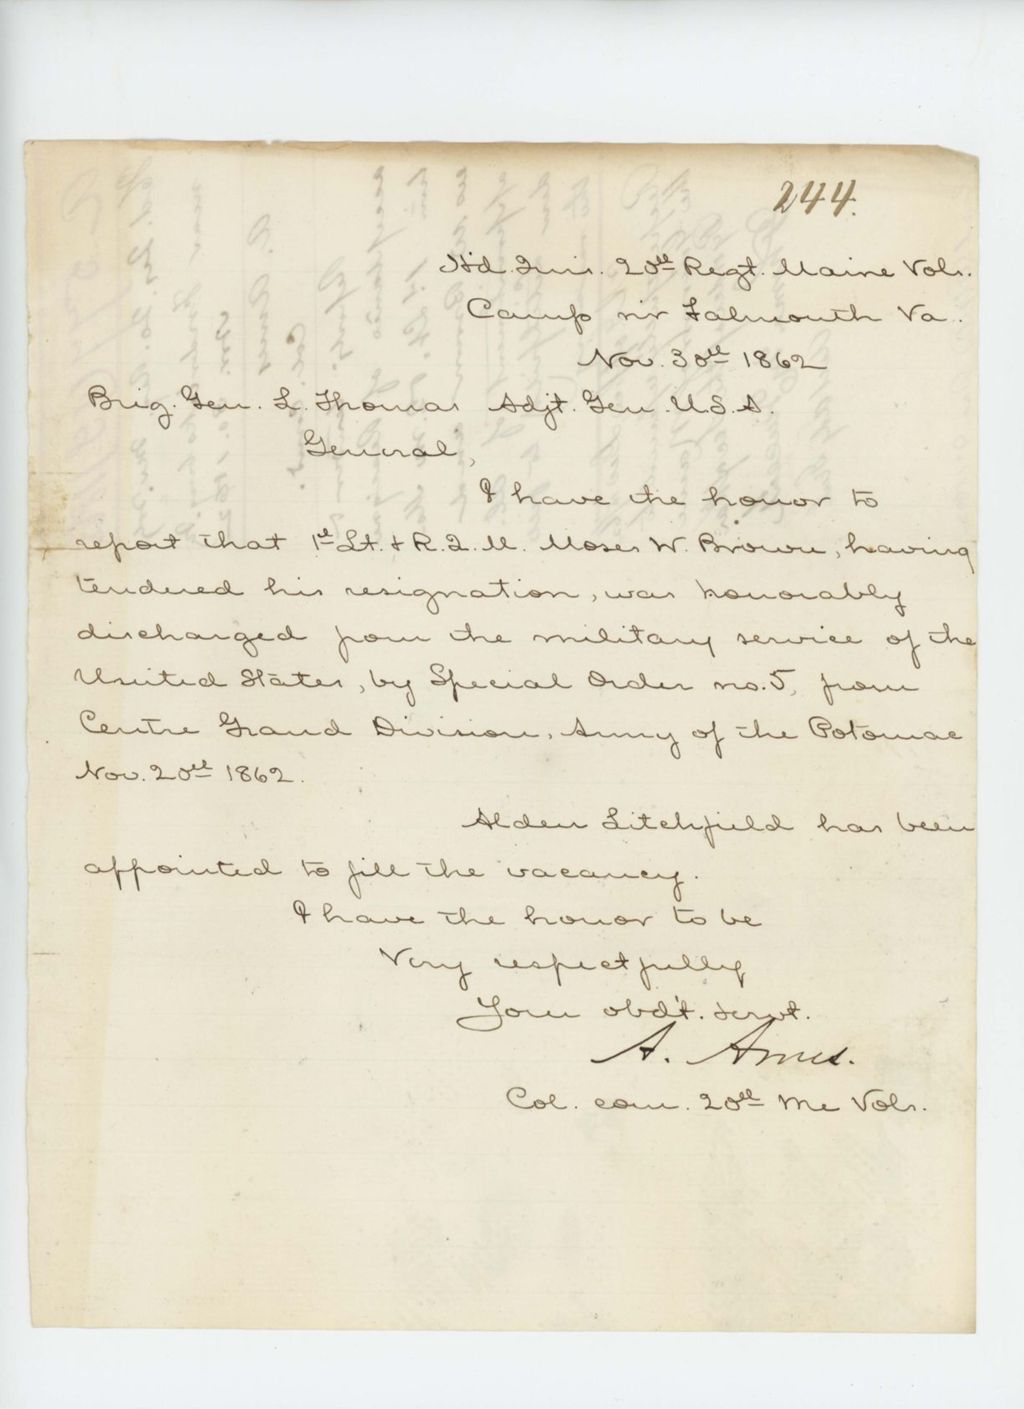 244.
Hd. Qrs. 20th Regt. Maine Vols.
Camp nr Falmouth Va.
Nov. 30th 1862
Brig. Gen. L. Thomas Adjt. Gen. U.S.A.
General,
I have the honor to
report that 1st Lt. & R.Q.M. Moses W. Brown, having
tendered his resignation, was honorably
discharged from the military service of the
United States, by Special Order no. 5, from
Centre Grand Division, Army of the Potomac
Nov. 20th 1862.
Alden Litchfield has been
appointed to fill the vacancy.
I have the honor to be
Very respectfully
Your obd't. servt.
A. Ames.
Col. com. 20th Me Vols.